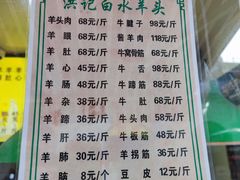 洪记白水羊头
羊头肉 68元/斤 牛腱子 98元/斤
羊眼 68元/斤 酱羊肉 118元/斤
羊肚 68元/斤 牛窝骨筋 68元/斤
羊心 45元/斤 牛舌 98元/斤
羊肠 45元/斤 牛蹄筋 88元/斤
羊杂 38元/斤 牛肚 68元/斤
羊蹄 35元/斤 牛头肉 58元/斤
羊肝 36元/斤 牛板筋 48元/斤
羊肺 30元/斤 羊拐筋 36元/斤
羊脑 8元/个 豆皮 12元/斤